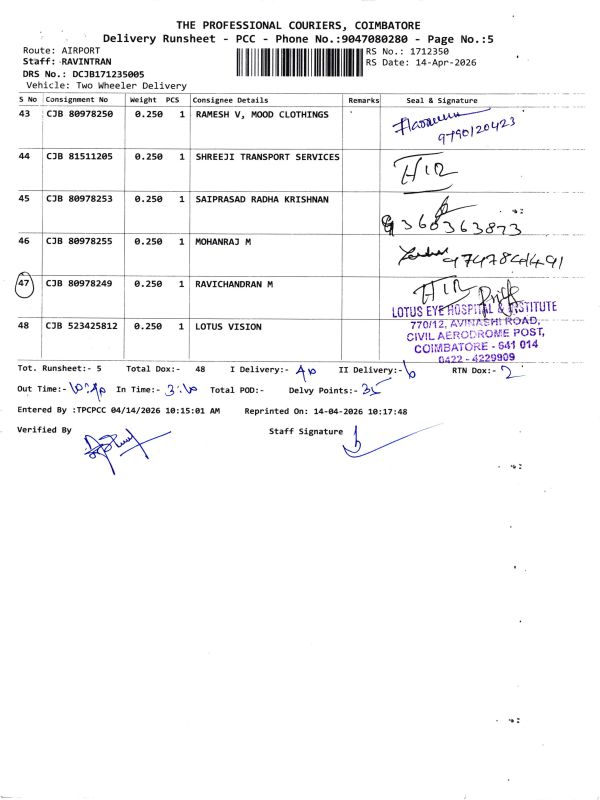 THE PROFESSIONAL COURIERS, COIMBATORE
Delivery Runsheet - PCC - Phone No.:9047080280 - Page No.:5
Route: AIRPORT RS No.: 1712350
Staff: RAVINTRAN RS Date: 14-Apr-2026
DRS No.: DCJB171235005
Vehicle: Two Wheeler Delivery
S No Consignment No Weight PCS Consignee Details Remarks Seal & Signature
43 CJB 80978250 0.250 1 RAMESH V, MOOD CLOTHINGS
9790120423
44 CJB 81511205 0.250 1 SHREEJI TRANSPORT SERVICES
45 CJB 80978253 0.250 1 SAIPRASAD RADHA KRISHNAN
9360363873
46 CJB 80978255 0.250 1 MOHANRAJ M
47 CJB 80978249 0.250 1 RAVICHANDRAN M
LOTUS EYE HOSPITAL & INSTITUTE
48 CJB 523425812 0.250 1 LOTUS VISION 770/12, AVINASHI ROAD,
CIVIL AERODROME POST,
COIMBATORE - 641 014
0422 - 4229909
Tot. Runsheet:- 5 Total Dox:- 48 I Delivery:- 40 II Delivery:- 6 RTN Dox:- 2
Out Time:- In Time:- Total POD:- Delvy Points:- 35
Entered By :TPCPCC 04/14/2026 10:15:01 AM Reprinted On: 14-04-2026 10:17:48
Verified By Staff Signature